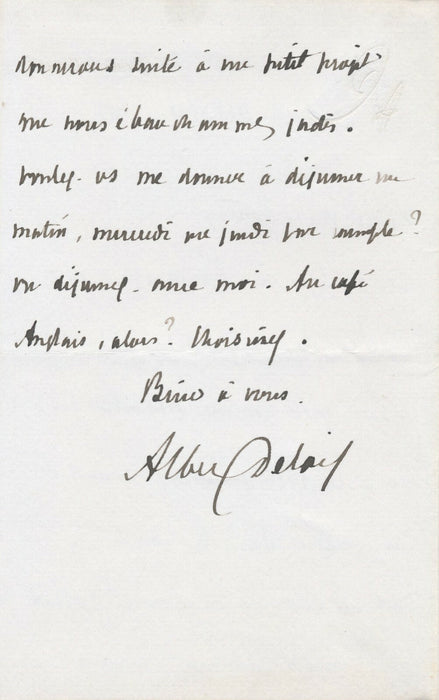 suite à ce petit projet
que nous ébauchammes jadis.
Voulez-vs me donner à déjeuner un
matin, mercredi ou jeudi par exemple?
ou déjeunez avec moi. Au café
Anglais, alors? Choisissez.
Bien à vous.
Albert Delpit